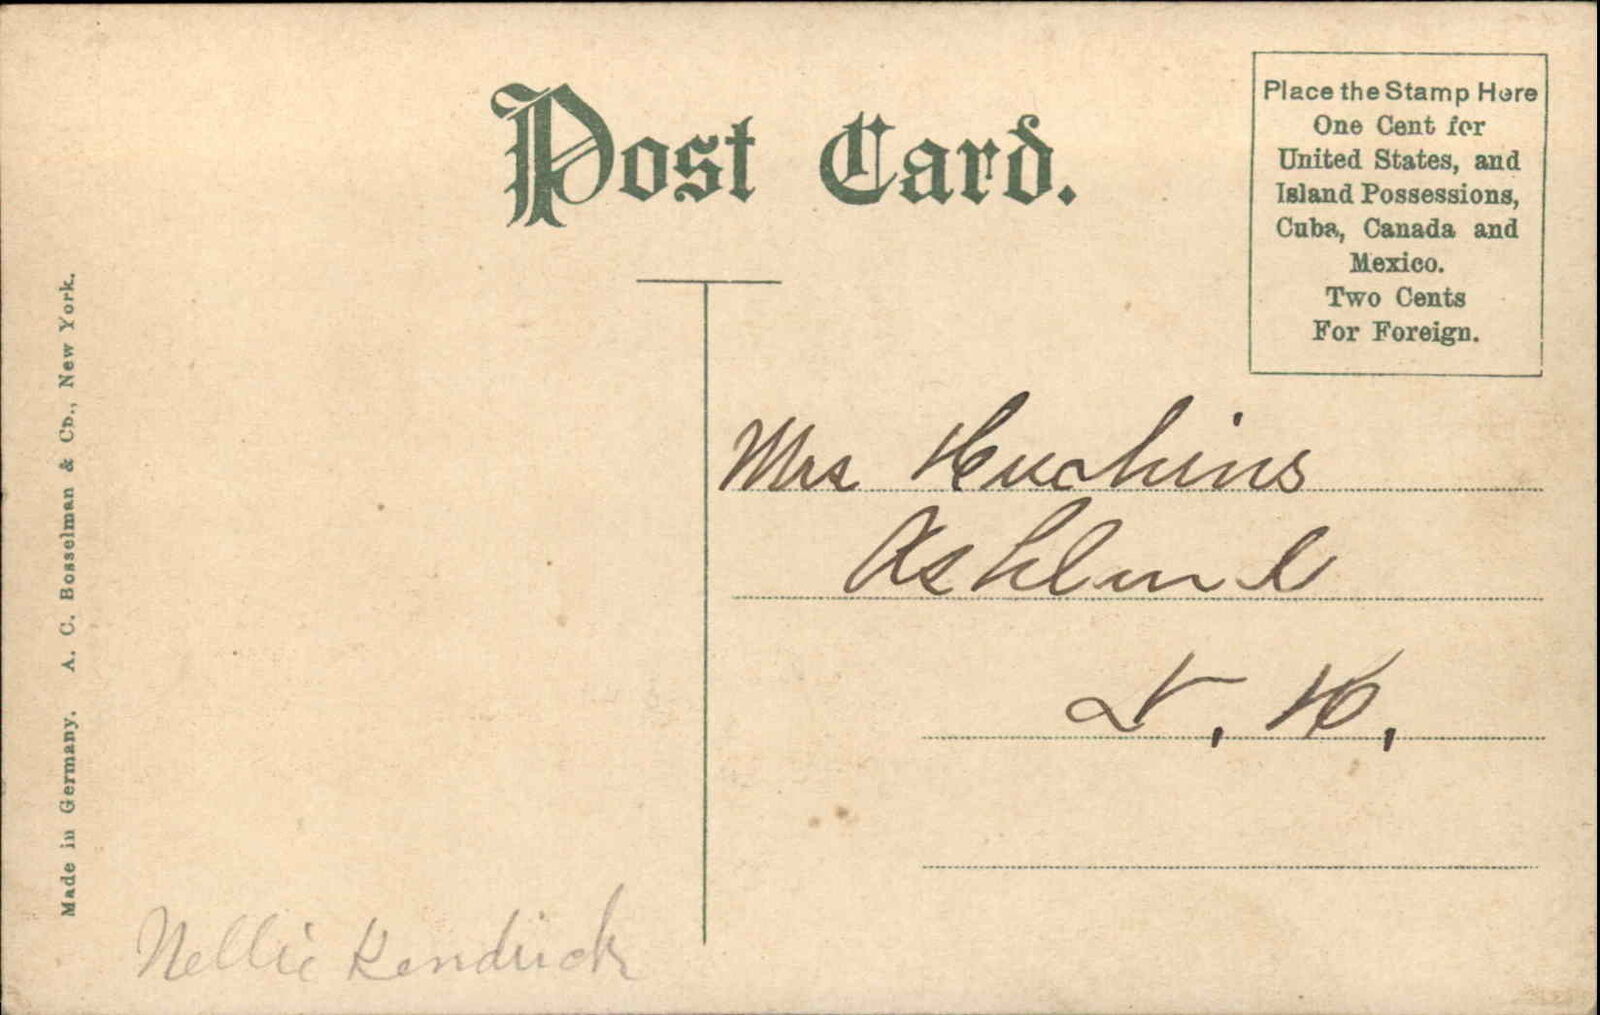 Post Card.
Place the Stamp Here
One Cent for
United States, and
Island Possessions,
Cuba, Canada and
Mexico.
Two Cents
For Foreign.
Made in Germany. A. C. Bosselman & Co., New York.
Mrs Huchins
Ashland
N. H.
Nellie Kendrick